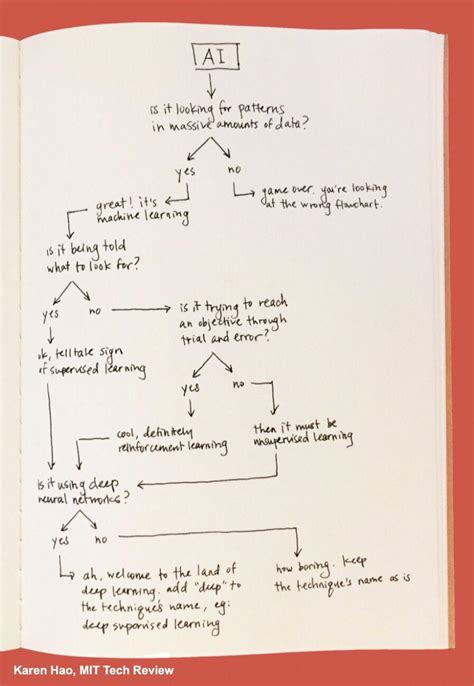 AI
is it looking for patterns
in massive amounts of data?
yes
no
great! it's
machine learning
game over. you're looking
at the wrong flowchart.
is it being told
what to look for?
yes
no
is it trying to reach
an objective through
trial and error?
ok, telltale sign
of supervised learning
yes
no
cool, definitely
reinforcement learning
then it must be
unsupervised learning
is it using deep
neural networks?
yes
no
ah, welcome to the land of
deep learning. add "deep" to
the technique's name, eg:
deep supervised learning
how boring. keep
the technique's name as is
Karen Hao, MIT Tech Review